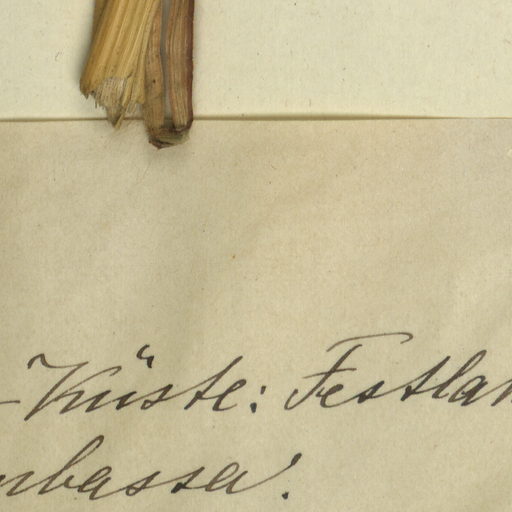 -Küste: Festlan
mbassa.